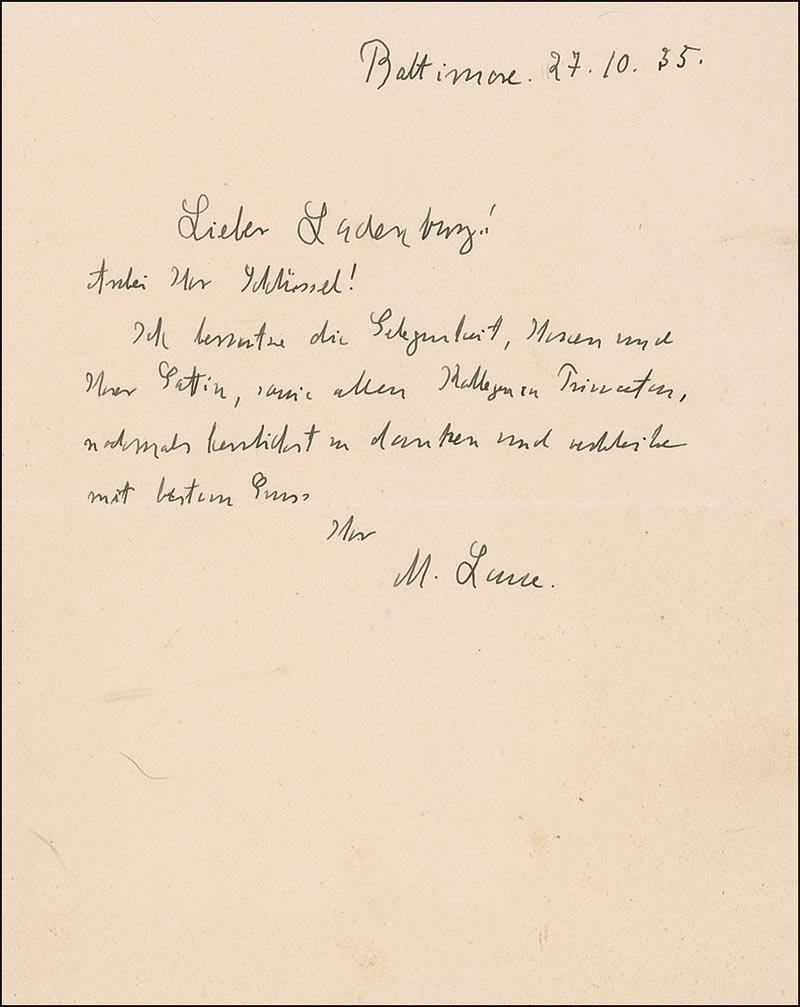 Baltimore. 27. 10. 35.
Lieber Ladenburg!
Anbei Ihr Schlüssel!
Ich benutze die Gelegenheit, Ihnen und
Ihrer Gattin, sowie allen Kollegen in Princeton,
nochmals herzlichst zu danken und verbleibe
mit bestem Gruss
Ihr
M. Laue.